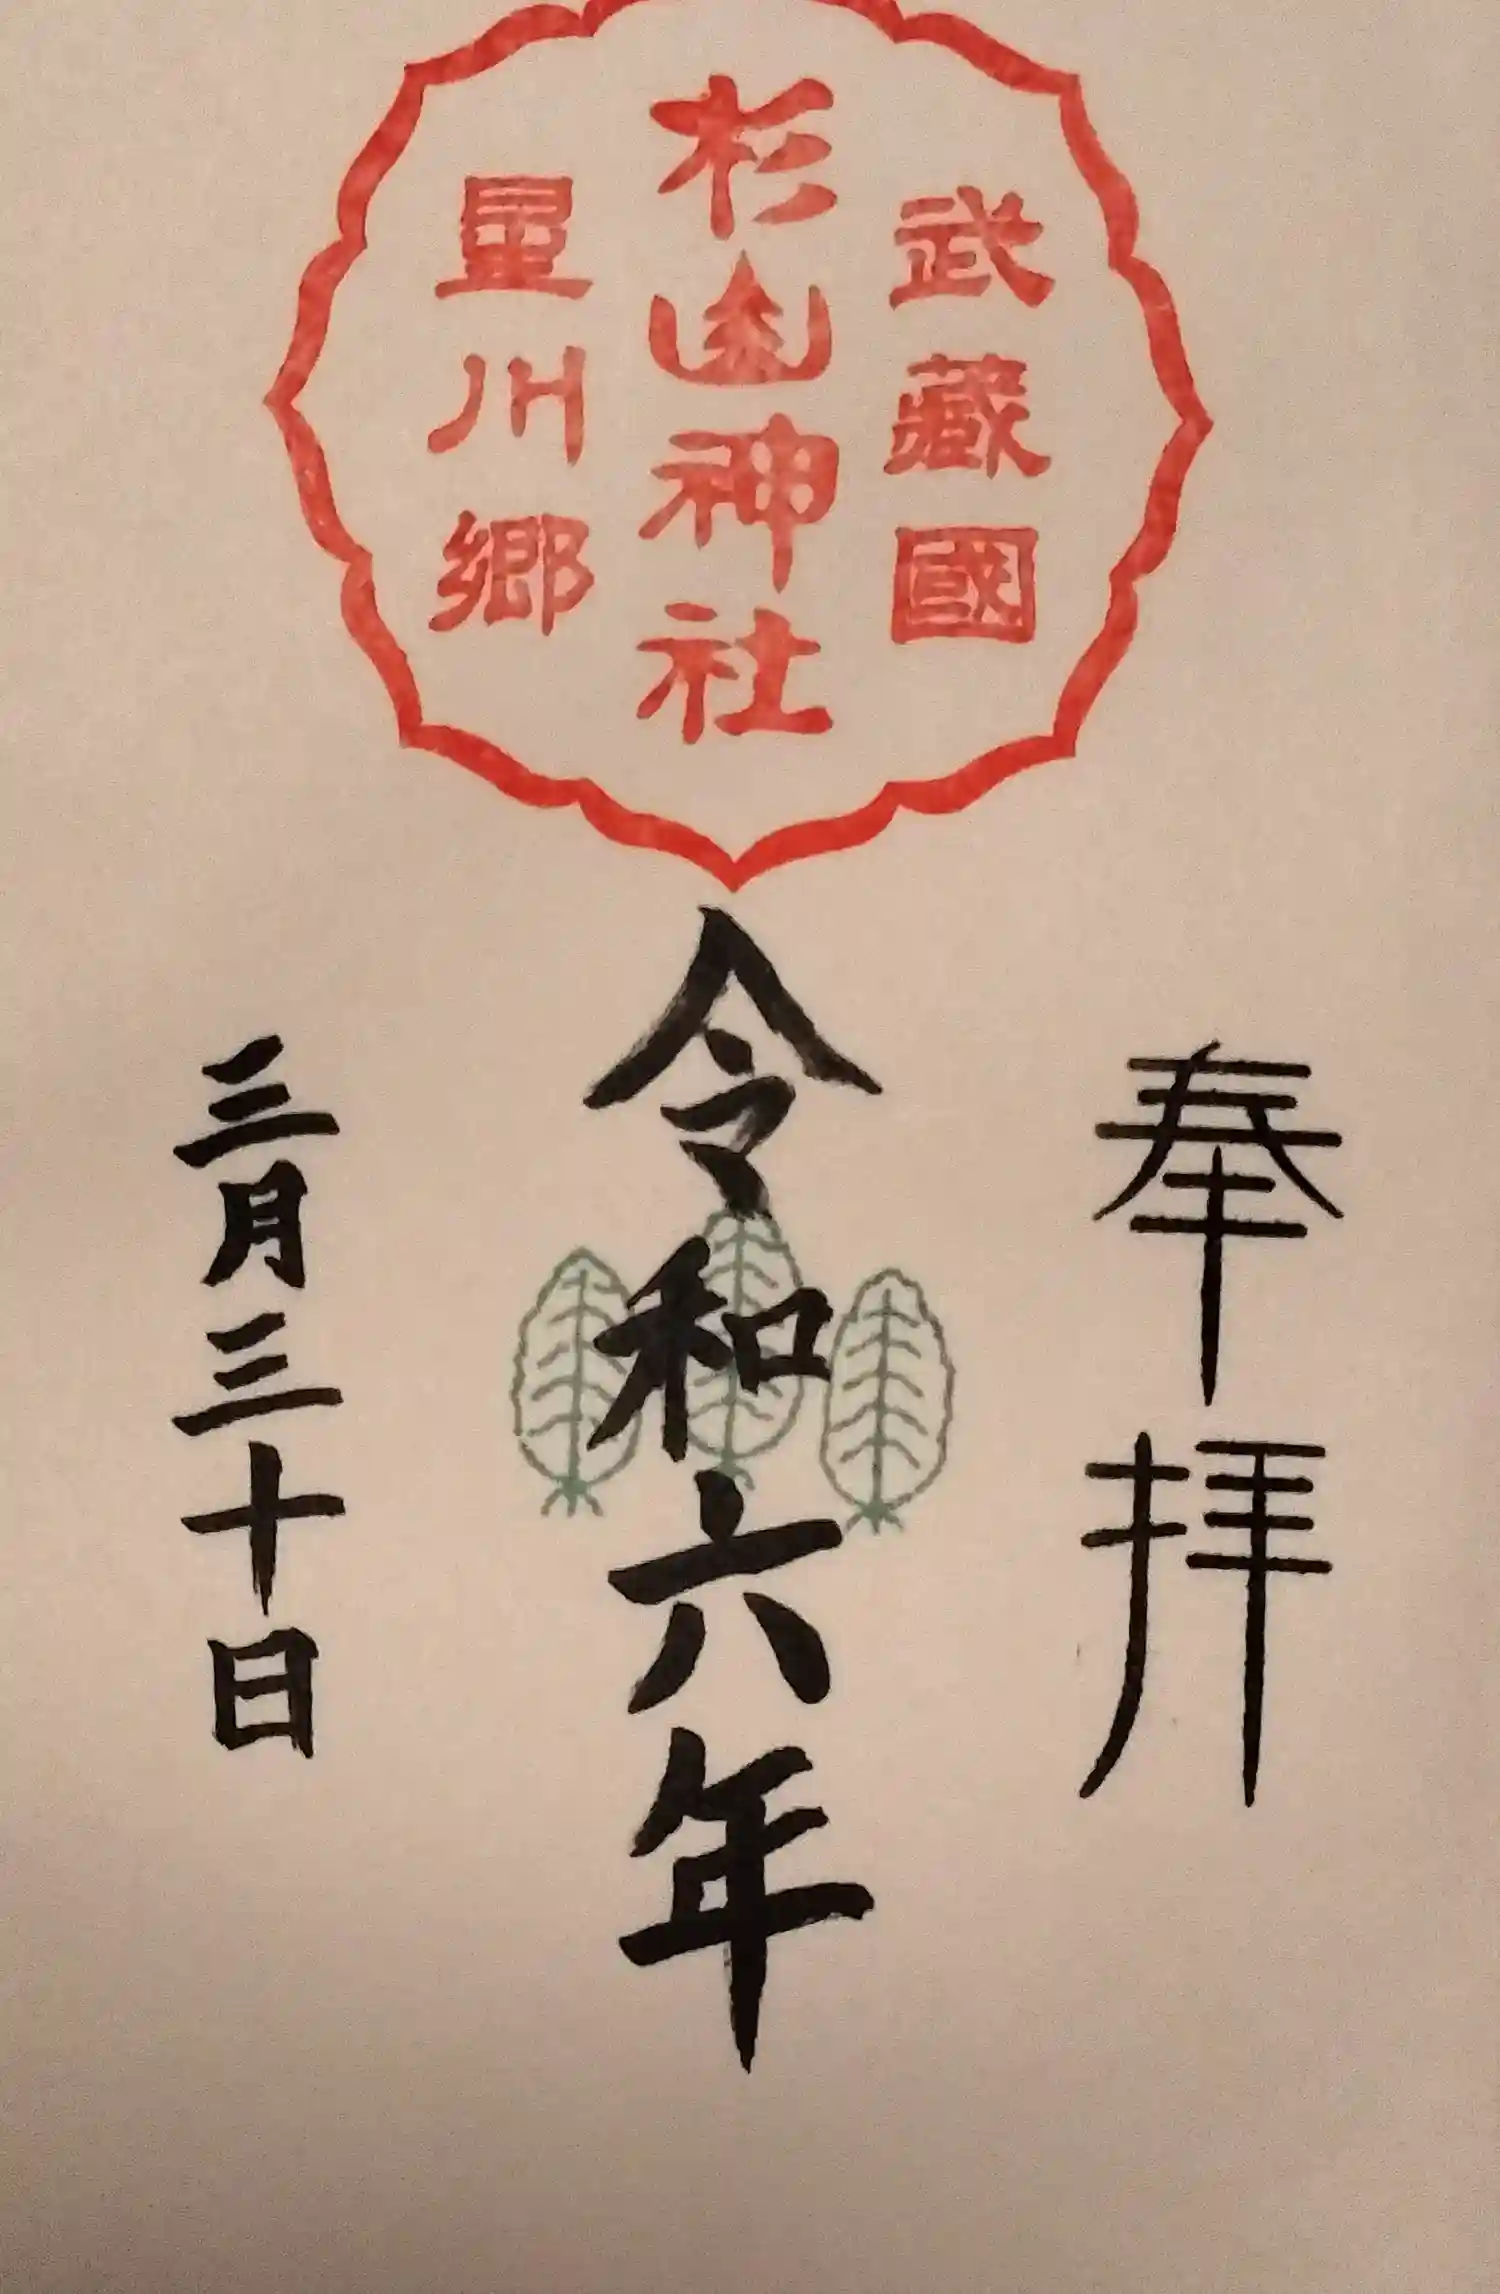 武藏國
杉山神社
星川郷
奉拝
令和六年
三月三十日